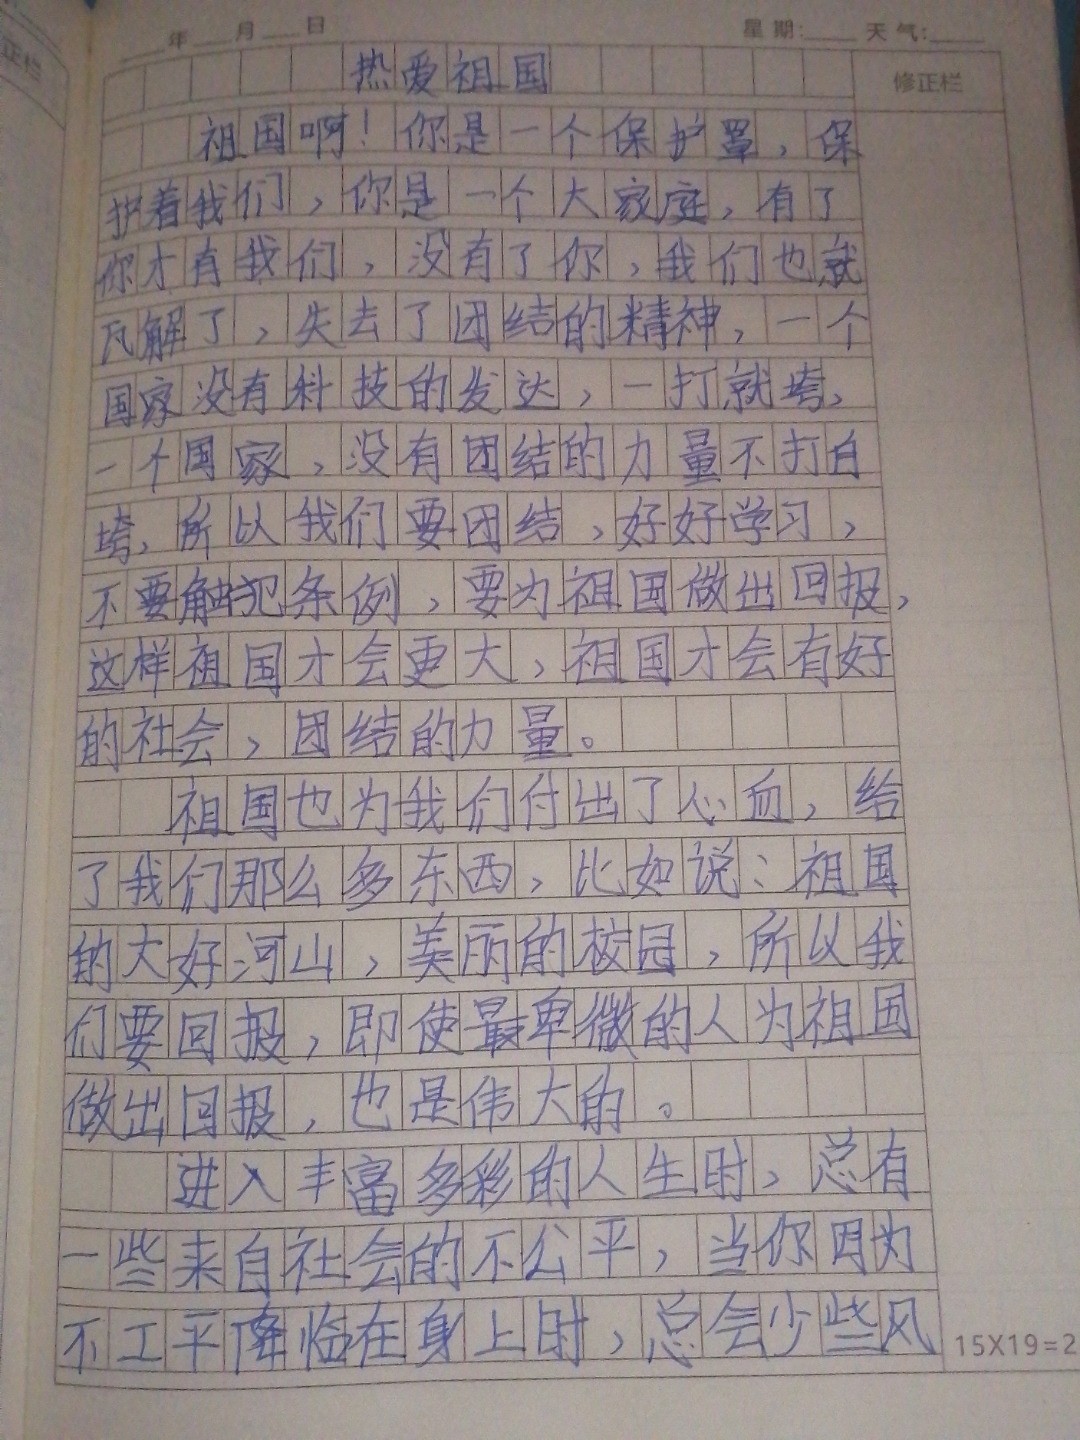 正栏
年 月 日 星期: 天气:
热爱祖国
修正栏
祖国啊！你是一个保护罩，保
护着我们，你是一个大家庭，有了
你才有我们，没有了你，我们也就
瓦解了，失去了团结的精神，一个
国家没有科技的发达，一打就垮，
一个国家，没有团结的力量不打自
垮，所以我们要团结，好好学习，
不要触犯条例，要为祖国做出回报，
这样祖国才会更大，祖国才会有好
的社会，团结的力量。
祖国也为我们付出了心血，给
了我们那么多东西，比如说：祖国
的大好河山，美丽的校园，所以我
们要回报，即使最卑微的人为祖国
做出回报，也是伟大的。
进入丰富多彩的人生时，总有
一些来自社会的不公平，当你因为
不工平降临在身上时，总会少些风
15X19=2